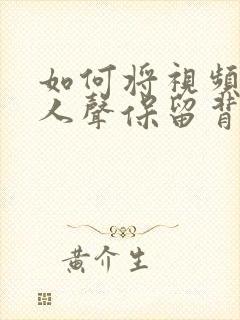 如何将視頻
人聲保留背
黄介生